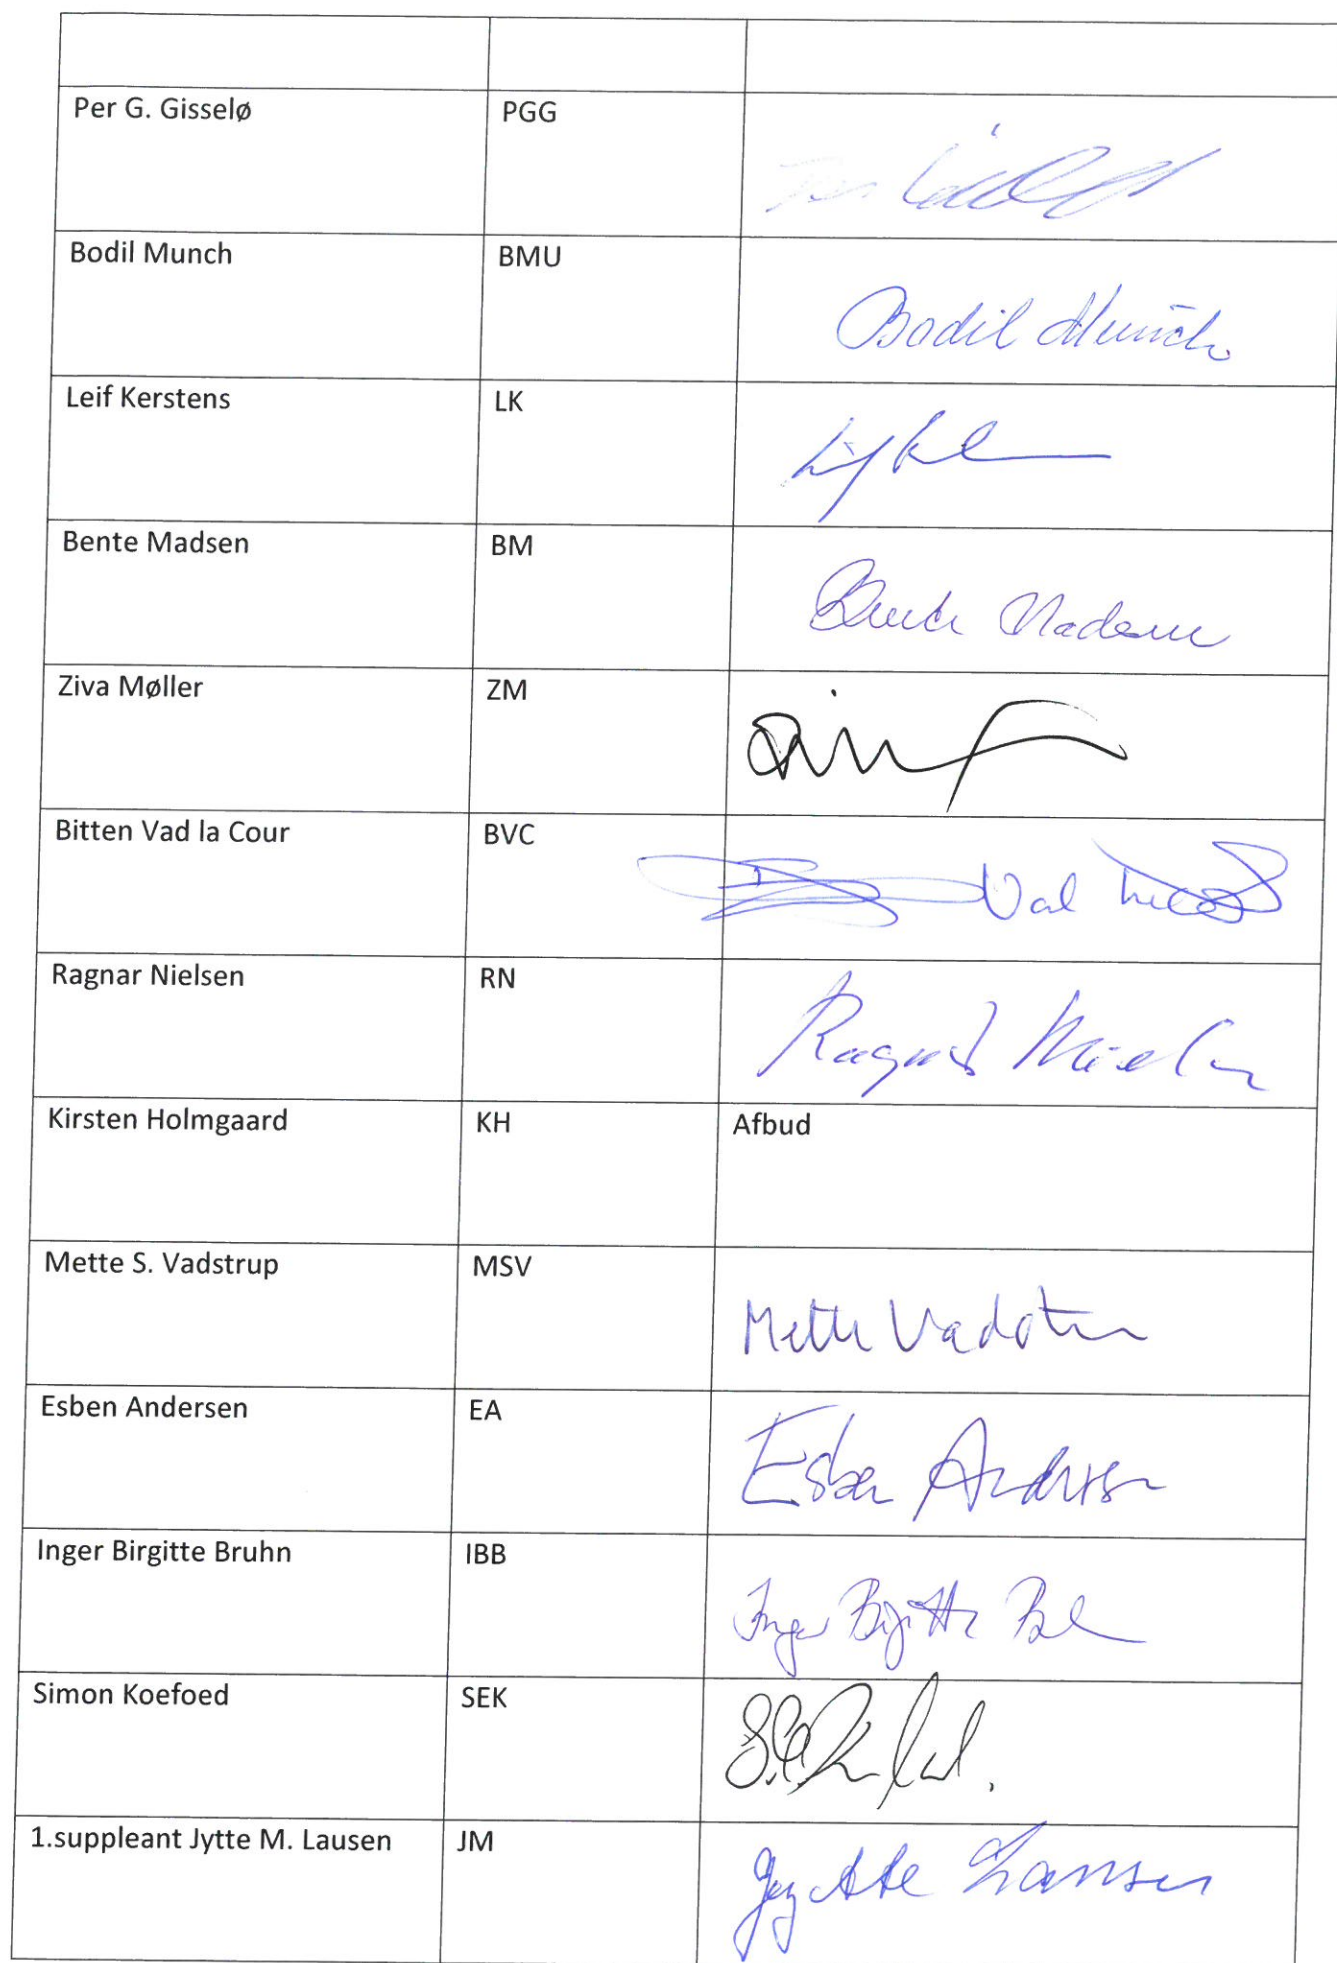 Per G. Gisselø PGG
Bodil Munch BMU Bodil Munch
Leif Kerstens LK
Bente Madsen BM Bente Madsen
Ziva Møller ZM
Bitten Vad la Cour BVC Vad
Ragnar Nielsen RN Ragnar Nielsen
Kirsten Holmgaard KH Afbud
Mette S. Vadstrup MSV Mette Vadstrup
Esben Andersen EA Esben Andersen
Inger Birgitte Bruhn IBB Inger Birgitte
Simon Koefoed SEK
1.suppleant Jytte M. Lausen JM Jytte Lausen